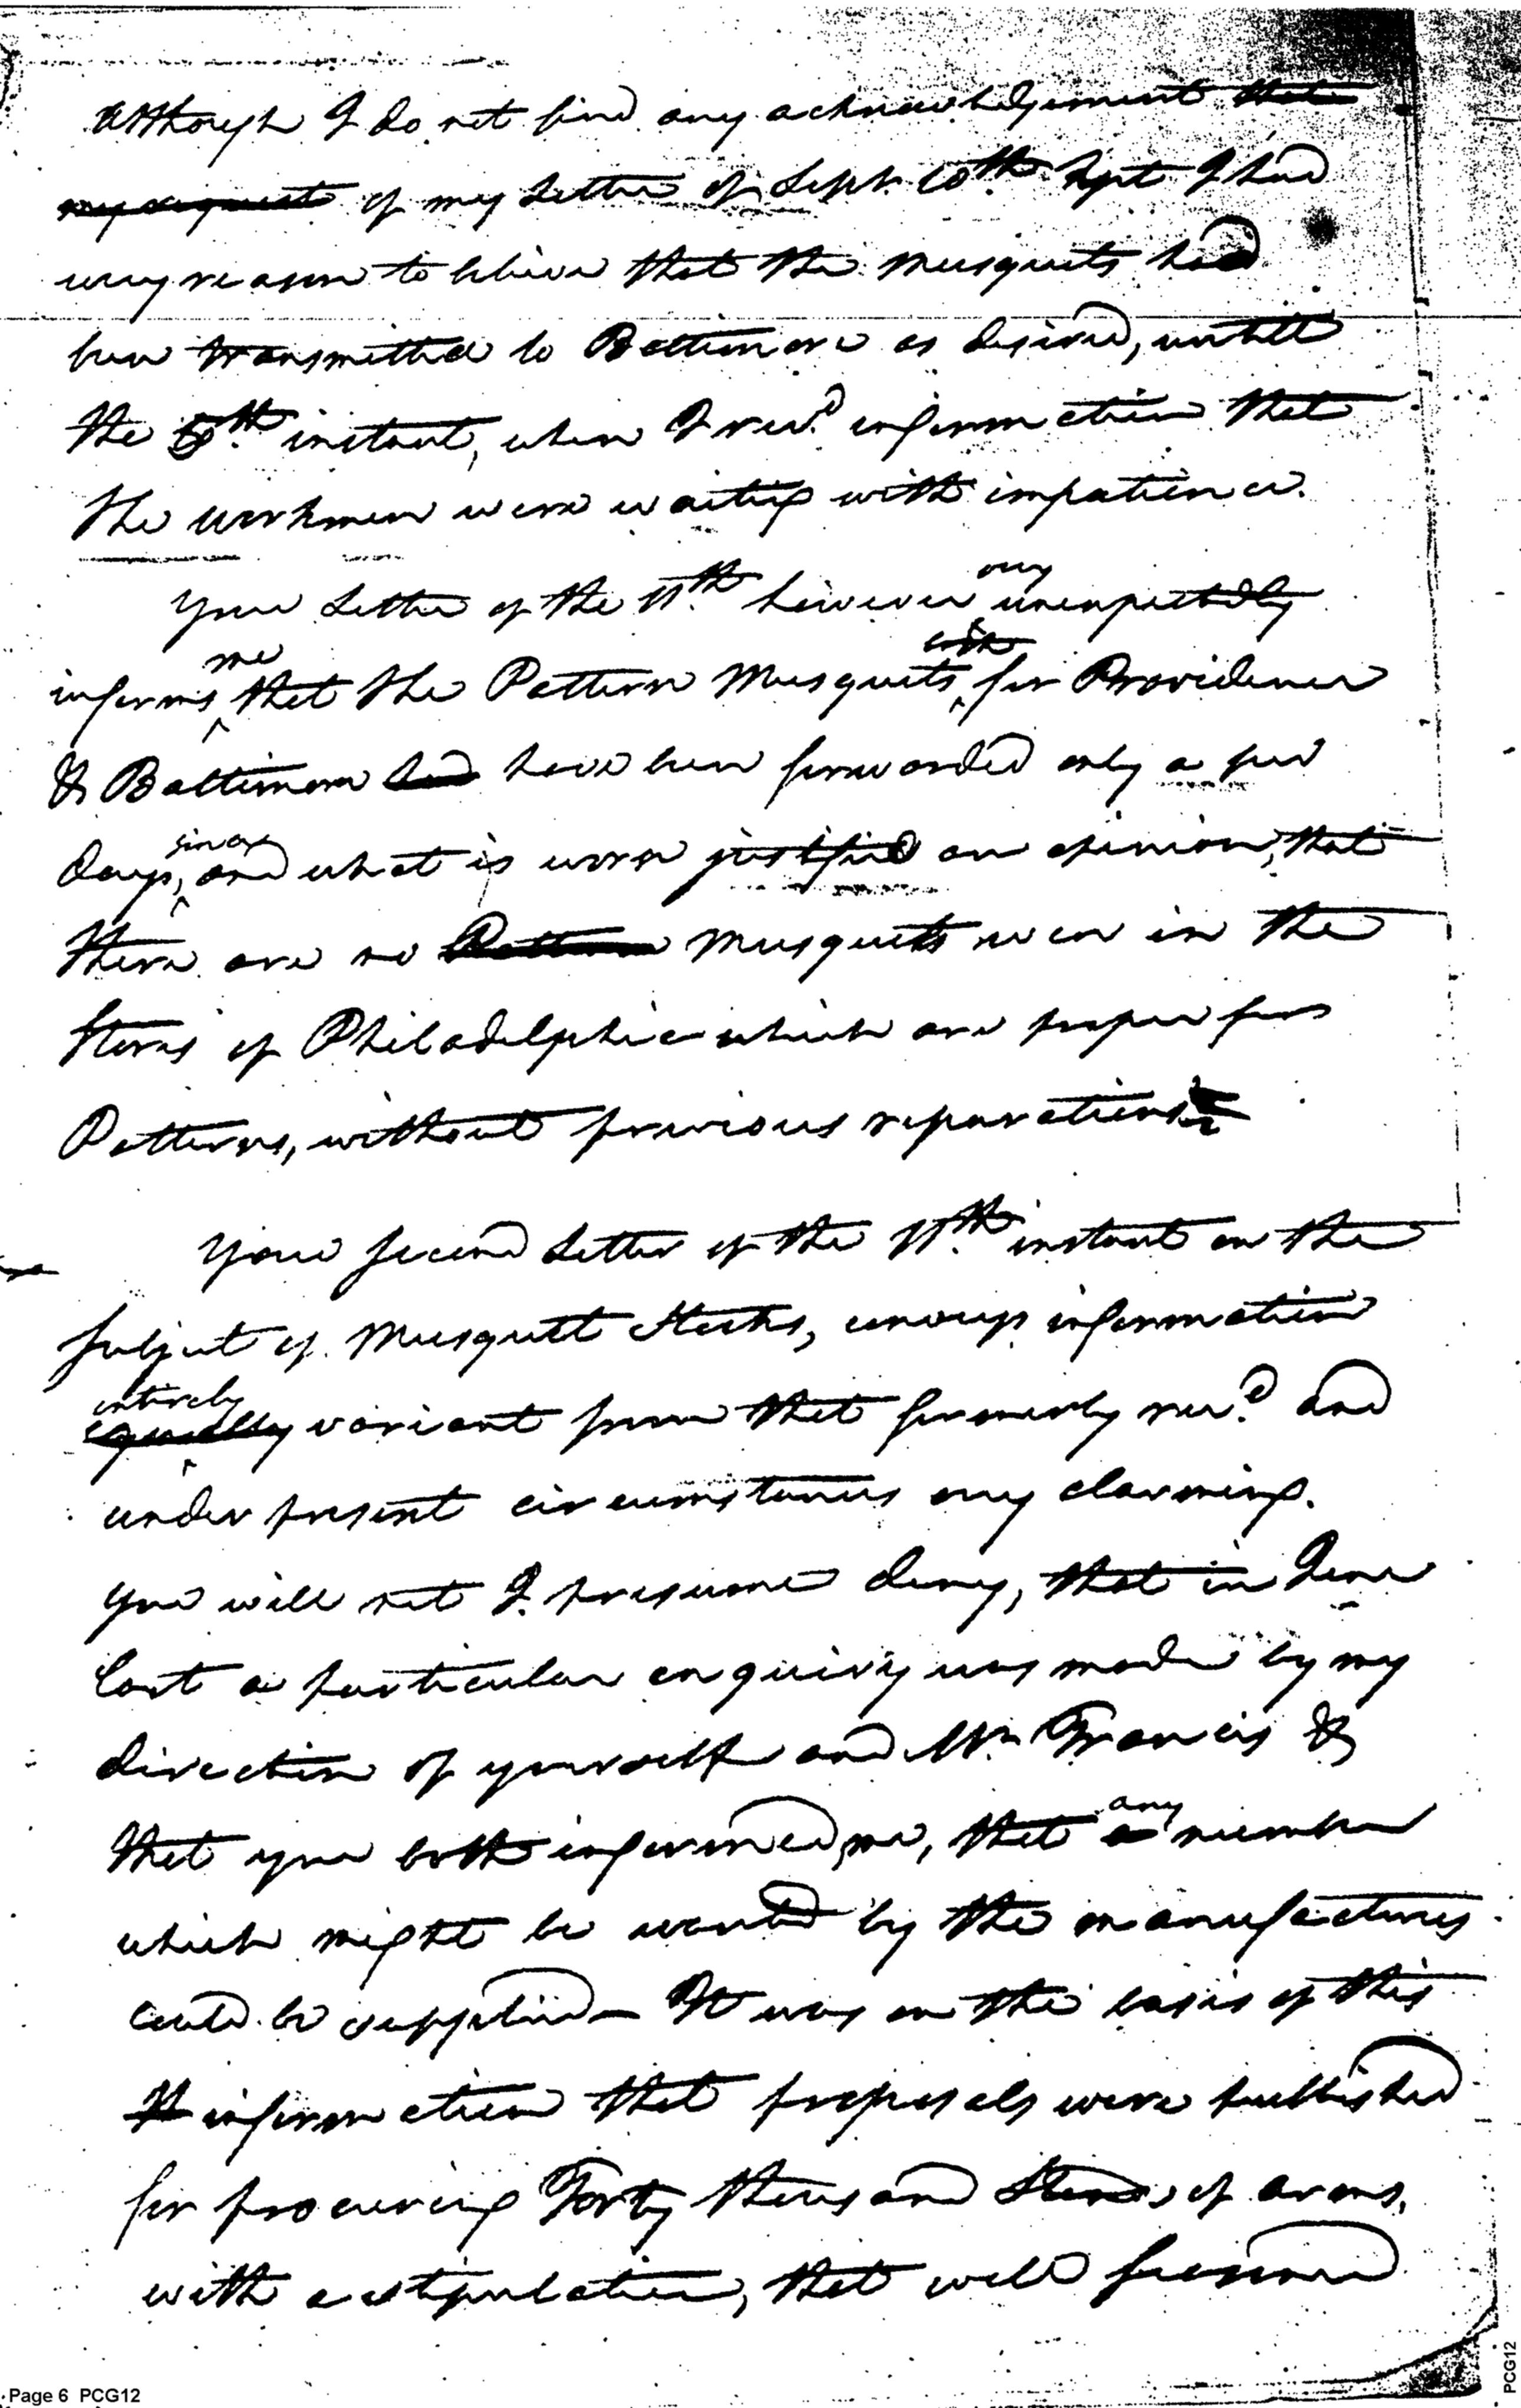 Although I do not find any acknowledgement that
my request of my Letter of Sept. 10th. Sept I had
every reason to believe that the Musquets had
been transmitted to Baltimore as desired, untill
the 5th. instant, when I recd. information that
the workmen were waiting with impatience.
very
Your Letter of the 11th. however unexpectedly
me
informs that the Pattern Musquets, for Providence
& Baltimore had have been forwarded only a few
since
days, and what is worse justified an opinion, that
there are no Pattern Musquets even in the
Stores of Philadelphia which are proper for
Patterns, without previous reparations
Your second Letter of the 11th. instant on the
subject of Musquett Stocks, conveys information
entirely
equally variant from that formerly recd. and
under present circumstances very alarming.
You will not I presume deny, that in June
last a particular enquiry was made by my
direction of yourself and Mr. Francis &
any
that you both informed me, that a number
which might be wanted by the manufactures
could be supplied – It was on the basis of this
It information that proposals were published
for procuring Forty thousand Stands of arms,
with a stipulation, that well seasoned
Page 6 PCG12
PCG12